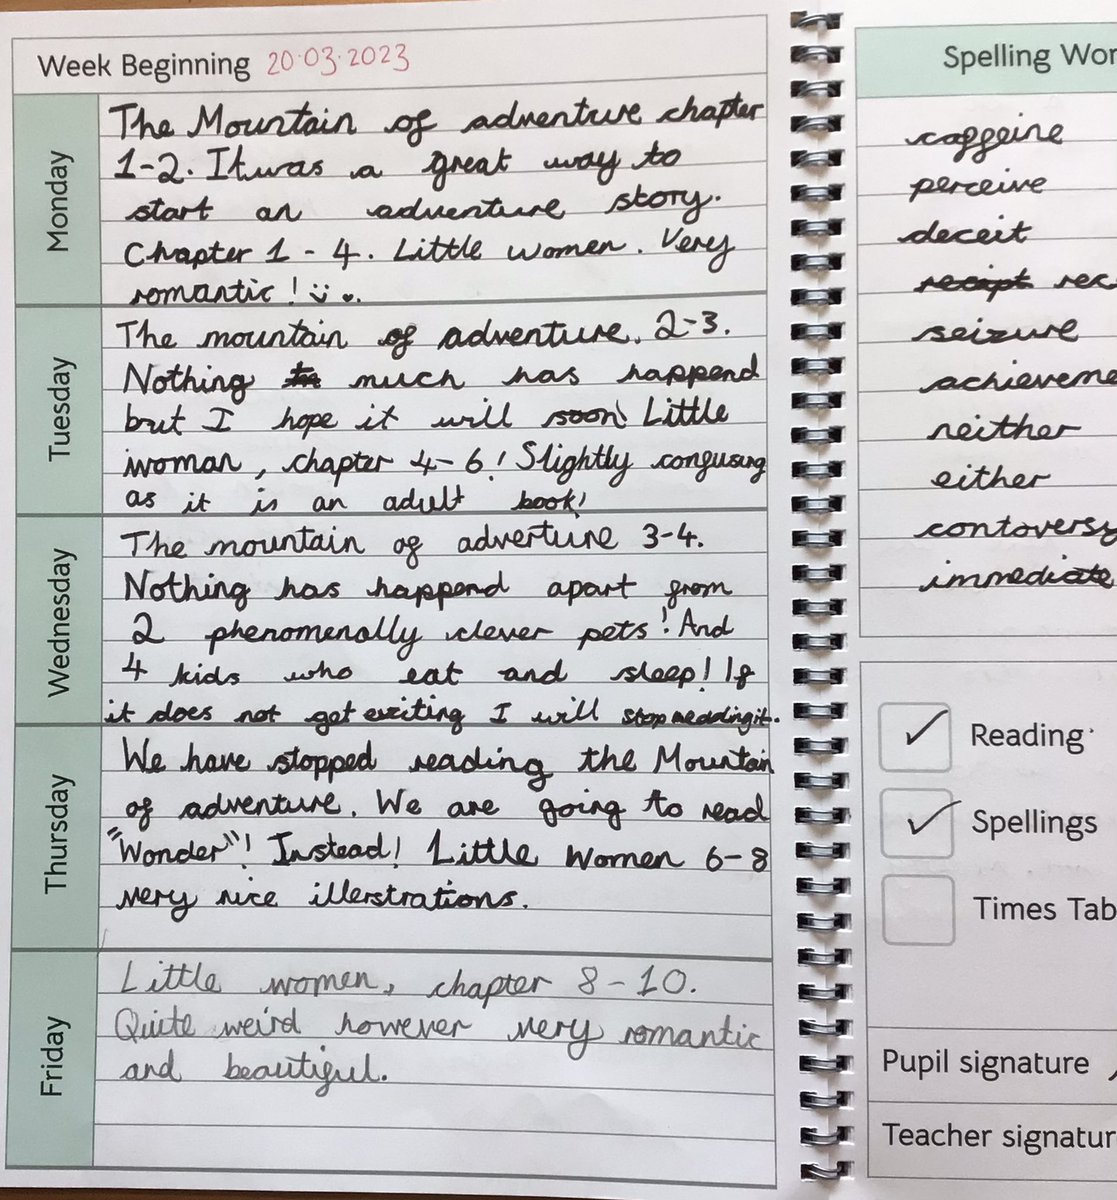 Week Beginning 20.03.2023
Monday
The Mountain of adventure chapter
1-2. It was a great way to
start an adventure story.
Chapter 1 - 4. Little women. Very
romantic!
Tuesday
The mountain of adventure. 2-3.
Nothing much has happend
but I hope it will soon! Little
woman, chapter 4-6! Slightly confusing
as it is an adult book!
Wednesday
The mountain of adventure 3-4.
Nothing has happend apart from
2 phenomenally clever pets! And
4 kids who eat and sleep! If
it does not get exiting I will stop reading it.
Thursday
We have stopped reading the Mountain
of adventure. We are going to read
"Wonder"! Instead! Little Women 6-8
very nice illerstrations.
Friday
Little women, chapter 8-10.
Quite weird however very romantic
and beautiful.
Spelling Wor
caffeine
perceive
deceit
reciept rec
seizure
achieveme
neither
either
contoversy
immediate
Reading
Spellings
Times Tab
Pupil signature
Teacher signatur